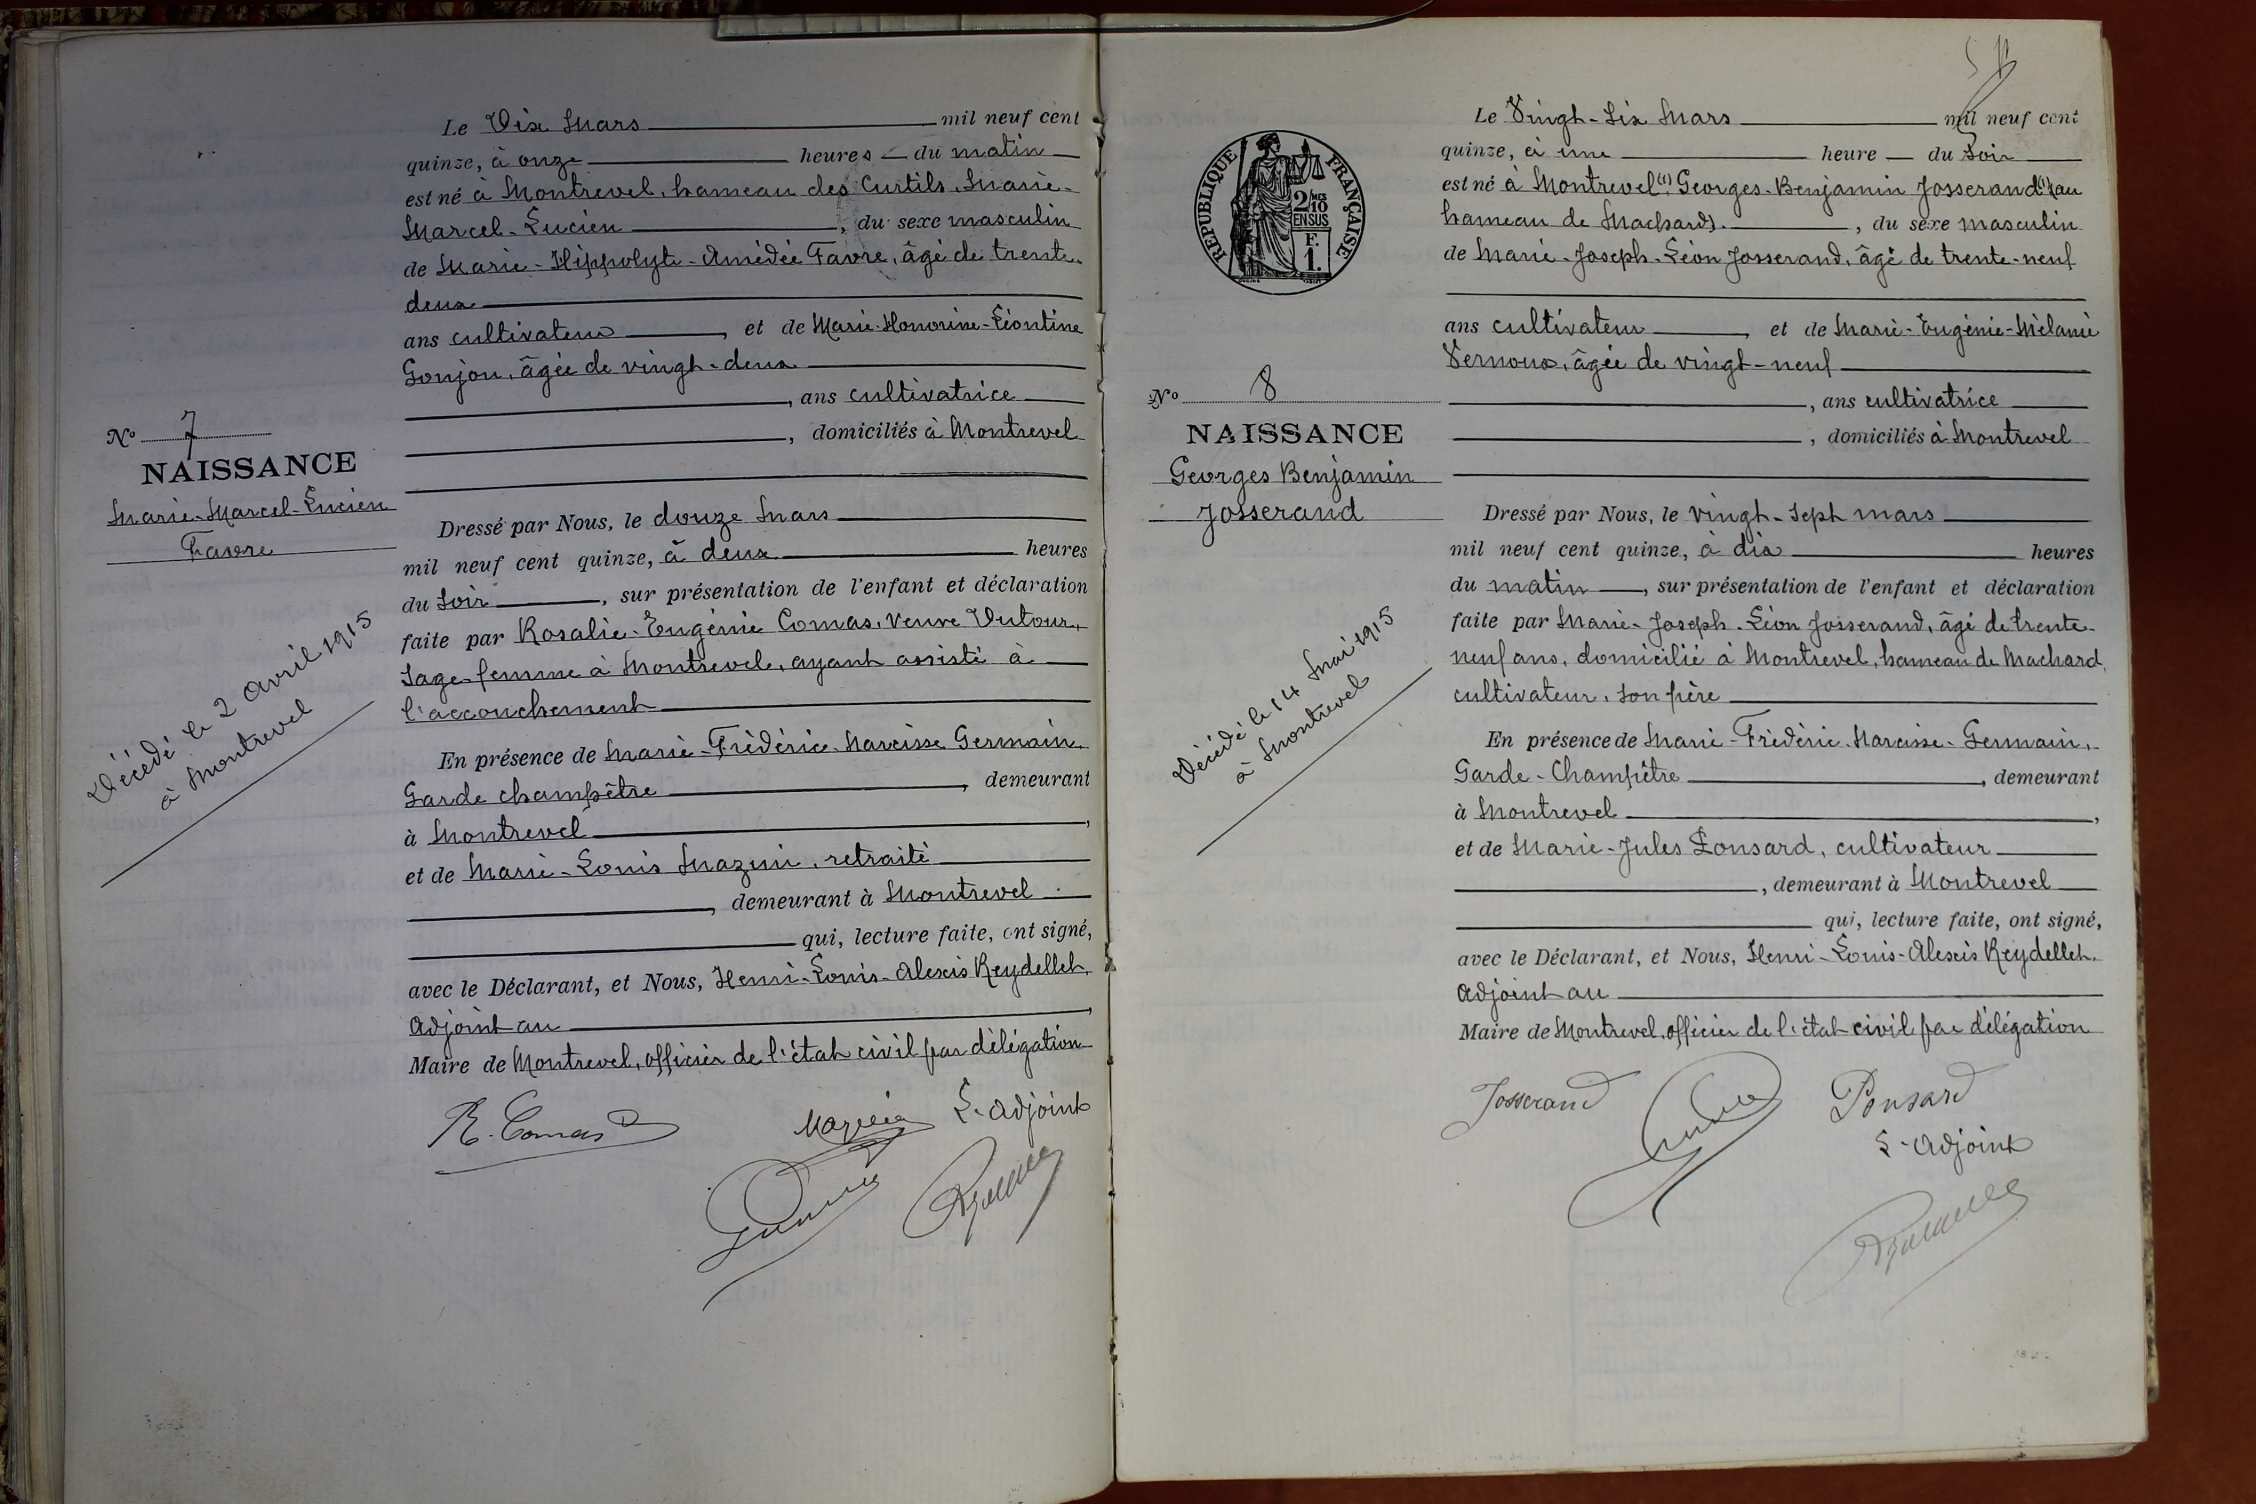 Le Dix Mars mil neuf cent
quinze, à onze heures du matin
est né à Montrevel, hameau des Curtils, Marie-
Marcel-Lucien, du sexe masculin
de Marie-Hippolyte-Amédée Favre, âgé de trente-
deux
ans cultivateur, et de Marie-Honorine-Léontine
Goujon, âgée de vingt-deux
, ans cultivatrice
, domiciliés à Montrevel
No 7
NAISSANCE
Marie-Marcel-Lucien
Favre
Décédé le 2 avril 1915
à Montrevel
Dressé par Nous, le douze Mars
mil neuf cent quinze, à deux heures
du soir, sur présentation de l'enfant et déclaration
faite par Rosalie-Eugénie Comas, veuve Dutour,
sage-femme à Montrevel, ayant assisté à
l'accouchement
En présence de Marie-Frédéric-Narcisse Germain,
Garde champêtre, demeurant
à Montrevel,
et de Marie-Louis Mazuir, retraité
, demeurant à Montrevel
qui, lecture faite, ont signé,
avec le Déclarant, et Nous, Henri-Louis-Alexis Reydellet,
adjoint au,
Maire de Montrevel, officier de l'état civil par délégation
R. Comas
L'adjoint
Le Vingt-Six Mars mil neuf cent
quinze, à une heure du Soir
est né à Montrevel (1) Georges-Benjamin Josserand (1) au
hameau de Machard, du sexe masculin
de Marie-Joseph-Léon Josserand, âgé de trente-neuf
ans cultivateur, et de Marie-Eugénie-Mélanie
Vernoux, âgée de vingt-neuf
, ans cultivatrice
, domiciliés à Montrevel
RÉPUBLIQUE FRANÇAISE
2/10
EN SUS
F.
1.
No 8
NAISSANCE
Georges Benjamin
Josserand
Décédé le 14 Mai 1915
à Montrevel
Dressé par Nous, le vingt-sept mars
mil neuf cent quinze, à dix heures
du matin, sur présentation de l'enfant et déclaration
faite par Marie-Joseph-Léon Josserand, âgé de trente-
neuf ans, domicilié à Montrevel, hameau de Machard,
cultivateur, son père
En présence de Marie-Frédéric-Narcisse-Germain,
Garde-Champêtre, demeurant
à Montrevel,
et de Marie-Jules Ponsard, cultivateur
, demeurant à Montrevel
qui, lecture faite, ont signé,
avec le Déclarant, et Nous, Henri-Louis-Alexis Reydellet,
adjoint au
Maire de Montrevel, officier de l'état civil par délégation
Josserand
Ponsard
L'adjoint